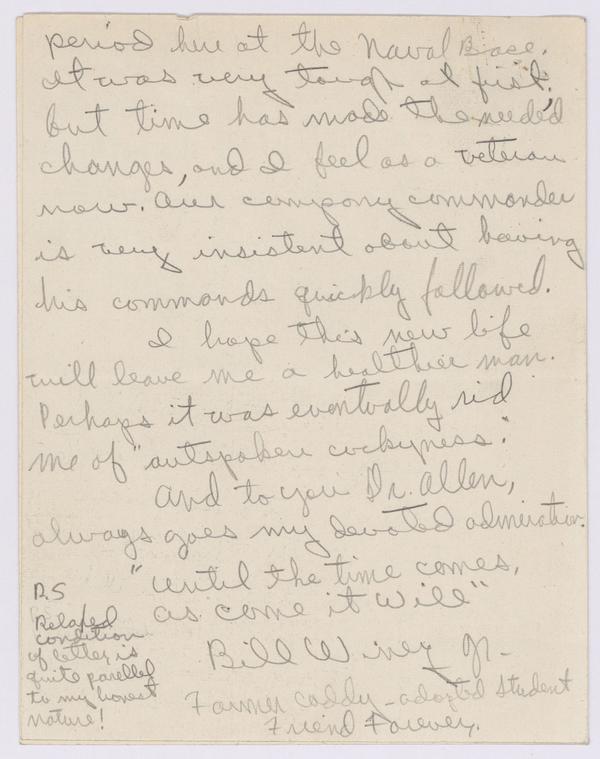 period here at the Naval Base.
It was very tough at first,
but time has made the needed
changes, and I feel as a veteran
now. Our company commander
is very insistent about having
his commands quickly followed.
I hope this new life
will leave me a healthier man.
Perhaps it was eventually rid
me of "outspoken cockyness."
And to you Dr. Allen,
always goes my devoted admiration.
"Until the time comes,
as come it will"
Bill Winey Jr.
Former caddy - adopted student
Friend Forever.
P.S
Relaped
condition
of letter is
quite parellel
to my honest
nature!